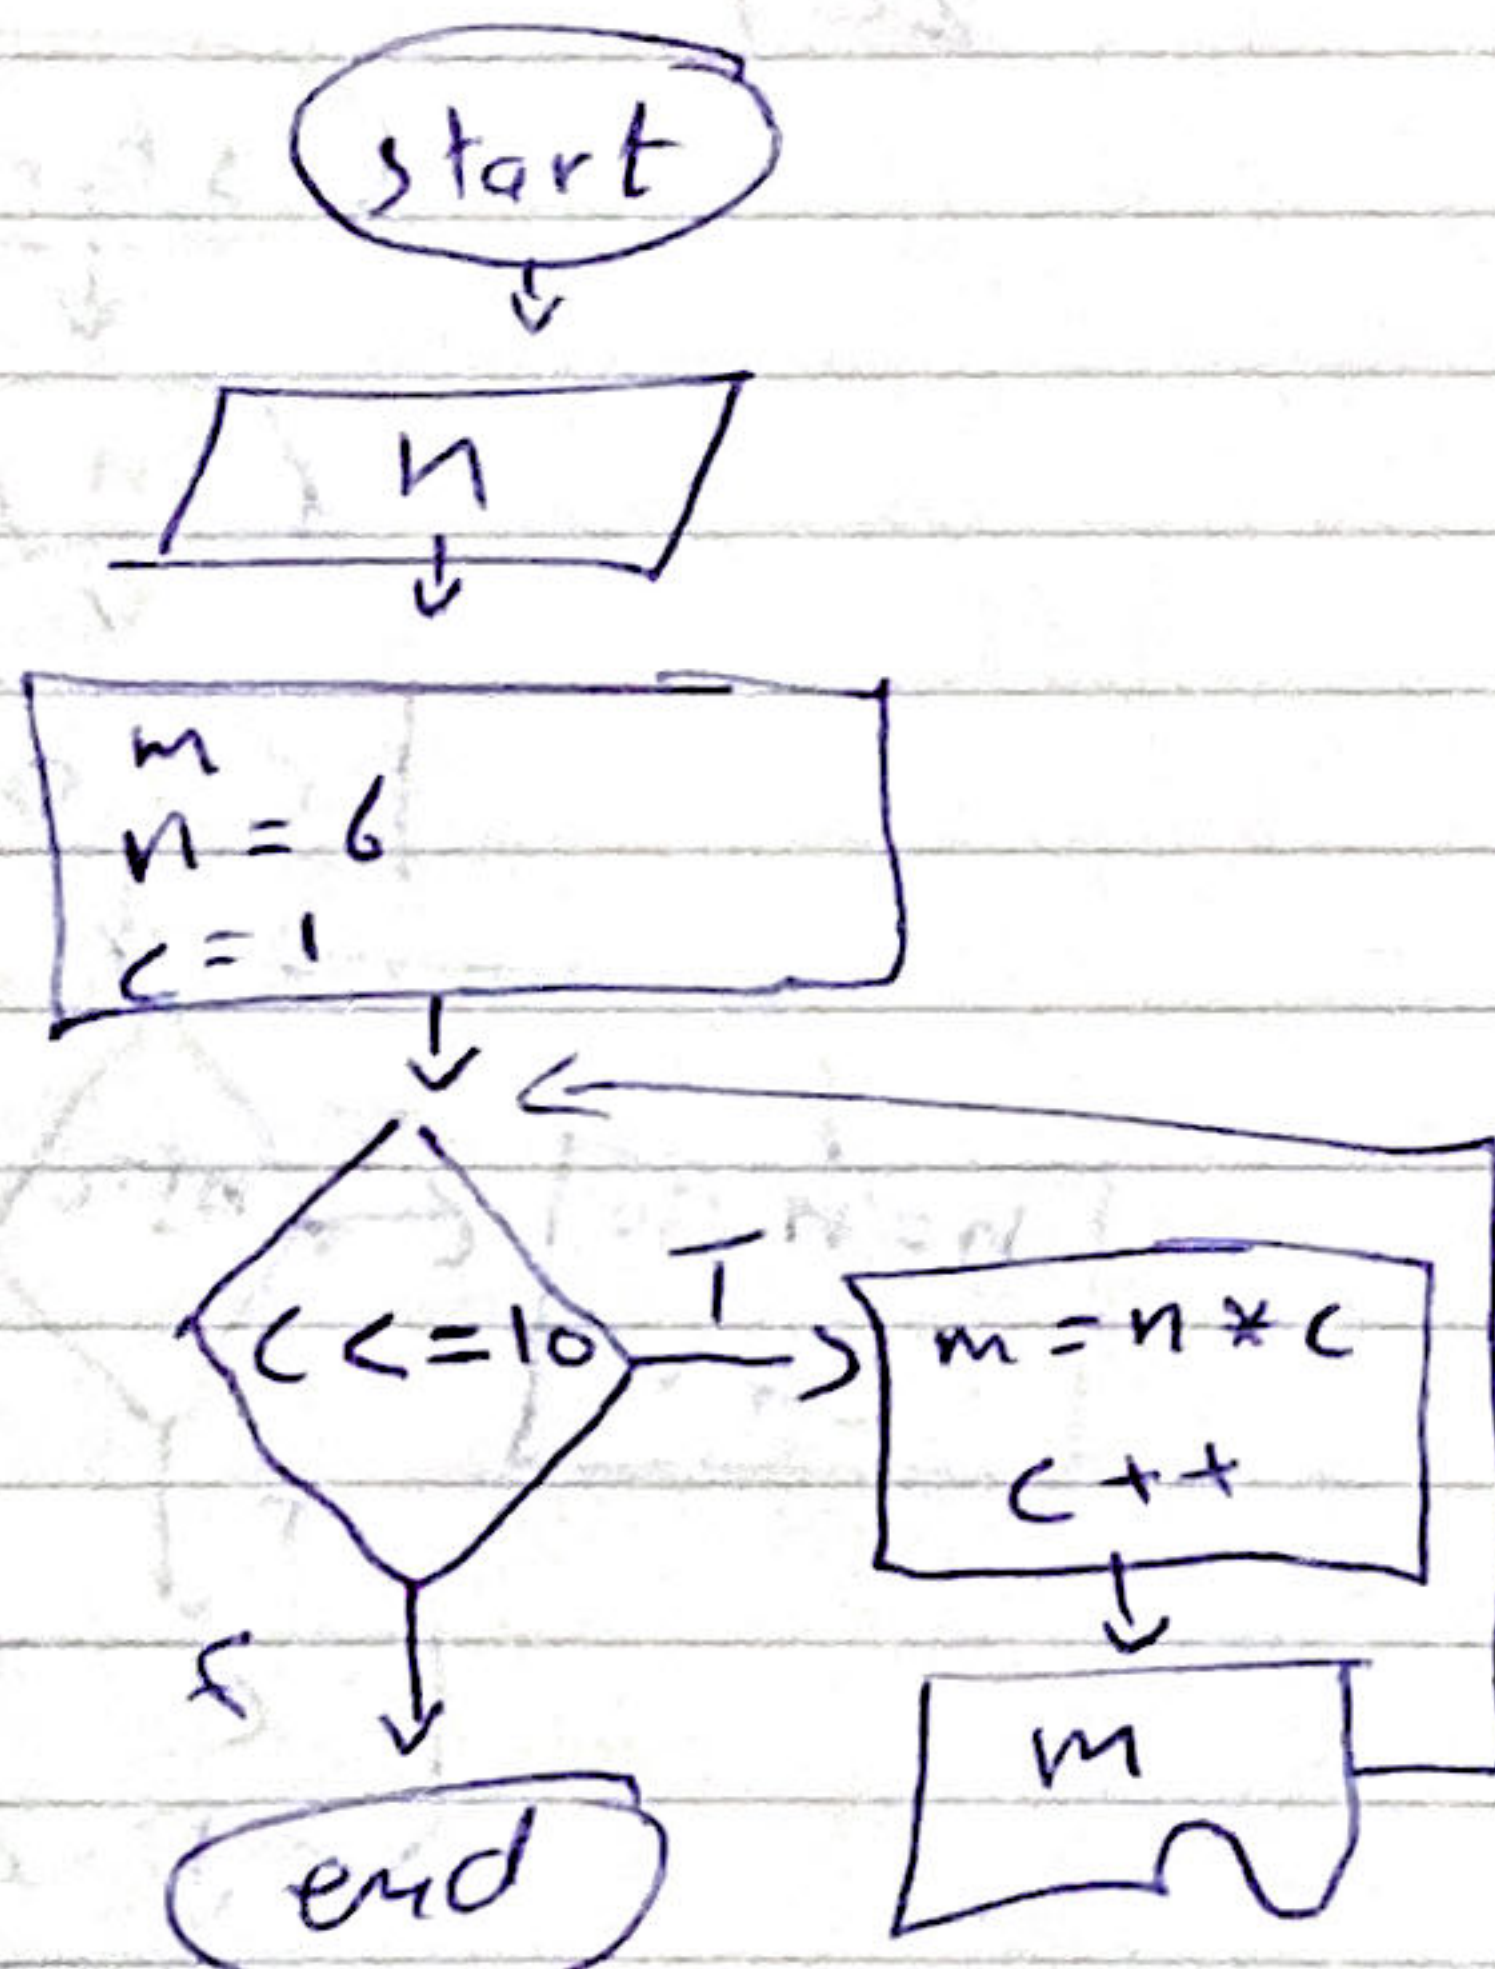 start
n
m
n = 6
c = 1
c <= 10
T
m = n * c
c ++
f
m
end